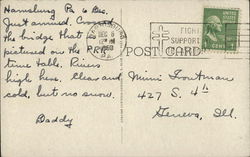 Harrisburg Pa 6 Dec.
Just arrived. Crossed
the bridge that is
pictured on the P.R.R.
time table. River
high here. Clear and
cold, but no snow.
Daddy
DEC 6
1950
FIGHT
SUPPORT
POST CARD
1 CENT
Mimi Troutman
427 S. 4th
Geneva, Ill.